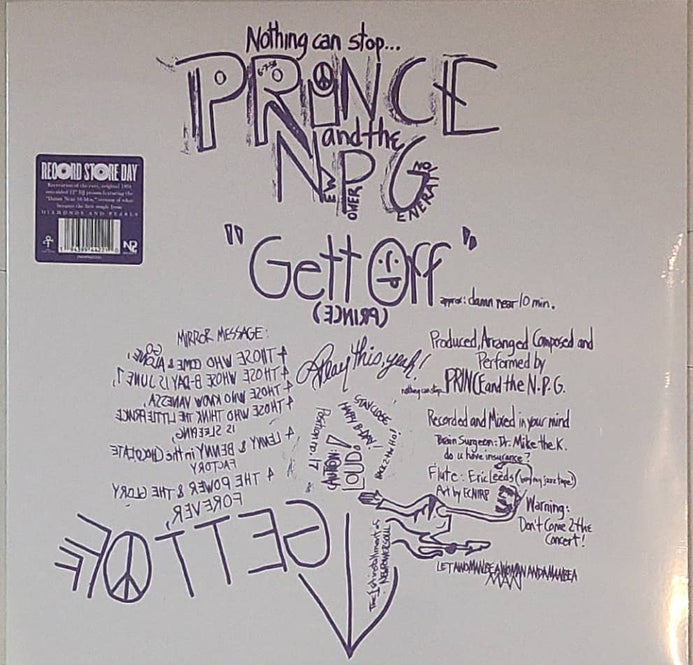 Nothing can stop...
PRINCE
6-7-58
and the
NPG
NEW POWER GENERATION
RECORD STORE DAY
Recreation of the rare, original 1991
one-sided 12" DJ promo featuring the
"Damn Near 10 Min." version of what
became the first single from
DIAMONDS AND PEARLS
NPG
"Gett Off"
approx: damn near 10 min.
(PRINCE)
MIRROR MESSAGE:
4 THOSE WHO COME & ALONE GO,
4 THOSE WHOSE B-DAY IS JUNE 7,
4 THOSE WHO KNOW VANESSA,
4 THOSE WHO THINK THE LITTLE PRINCE
IS SLEEPING,
4 LENNY & BENNY in the CHOCOLATE
FACTORY
4 THE POWER & THE GLORY
FOREVER,
GETT OFF
Play this, yeah!
STAY CLOSE
HAPPY B-DAY!
Position no. 17
LOUD!
Produced, Arranged Composed and
Performed by
nothing can stop... PRINCE and the N.P.G.
Recorded and Mixed in your mind
Brain Surgeon: Dr. Mike the K.
do u have insurance?
Flute: Eric Leeds
Art by ECNIRP
Warning:
Don't Come 2 the
Concert!
The 1st installment of
NEW POWER SOUL
LET A WOMAN BE A WOMAN AND A MAN BE A
MAN